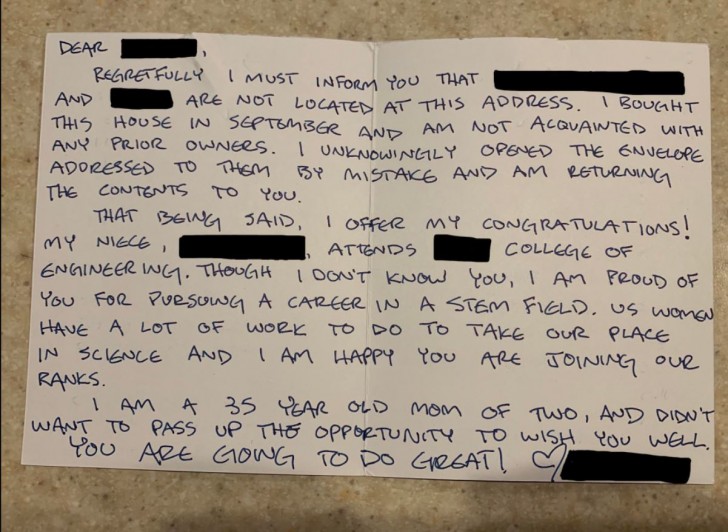 DEAR ,
REGRETFULLY I MUST INFORM YOU THAT
AND ARE NOT LOCATED AT THIS ADDRESS. I BOUGHT
THIS HOUSE IN SEPTEMBER AND AM NOT ACQUAINTED WITH
ANY PRIOR OWNERS. I UNKNOWINGLY OPENED THE ENVELOPE
ADDRESSED TO THEM BY MISTAKE AND AM RETURNING
THE CONTENTS TO YOU.
THAT BEING SAID, I OFFER MY CONGRATULATIONS!
MY NIECE, , ATTENDS COLLEGE OF
ENGINEERING. THOUGH I DON'T KNOW YOU, I AM PROUD OF
YOU FOR PURSUING A CAREER IN A STEM FIELD. US WOMEN
HAVE A LOT OF WORK TO DO TO TAKE OUR PLACE
IN SCIENCE AND I AM HAPPY YOU ARE JOINING OUR
RANKS.
I AM A 35 YEAR OLD MOM OF TWO, AND DIDN'T
WANT TO PASS UP THE OPPORTUNITY TO WISH YOU WELL.
YOU ARE GOING TO DO GREAT! ♡